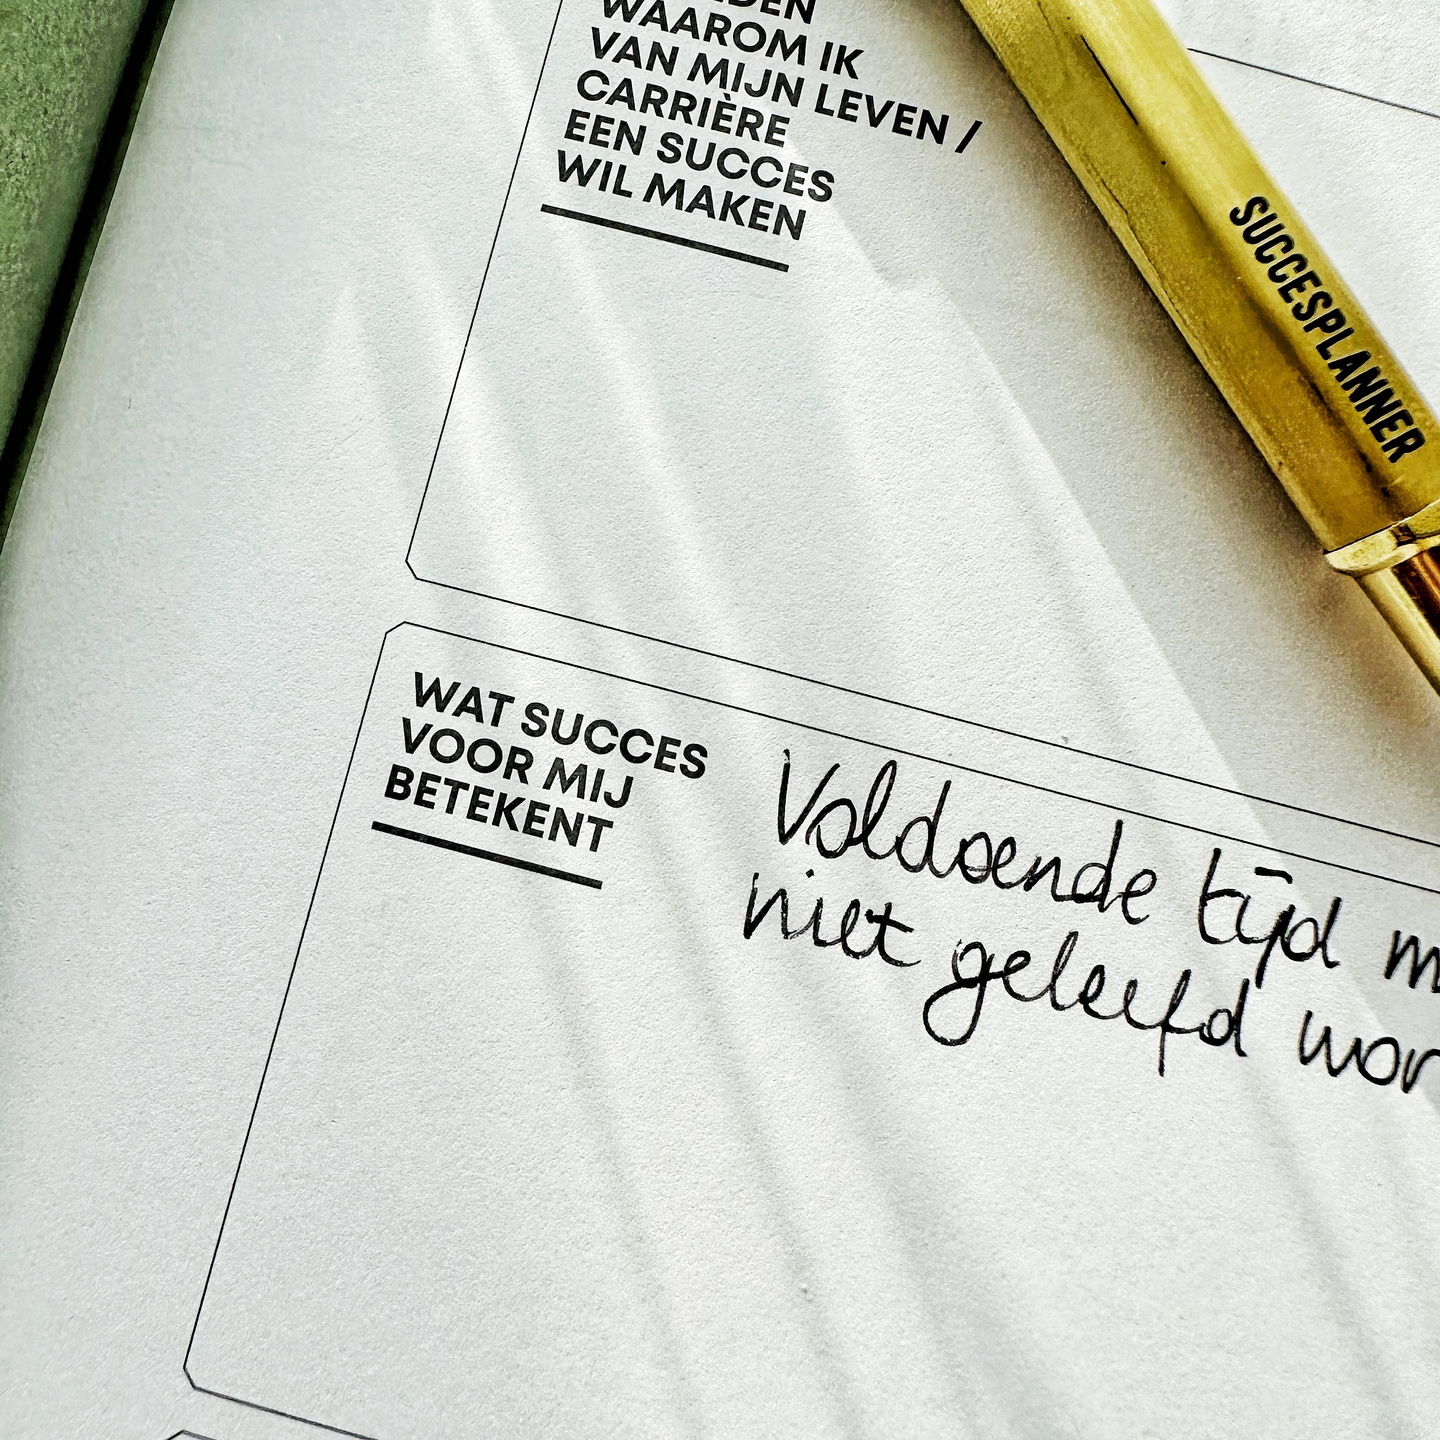 WAAROM IK
VAN MIJN LEVEN /
CARRIÈRE
EEN SUCCES
WIL MAKEN
SUCCESPLANNER
WAT SUCCES
VOOR MIJ
BETEKENT
Voldoende tijd
niet geleefd